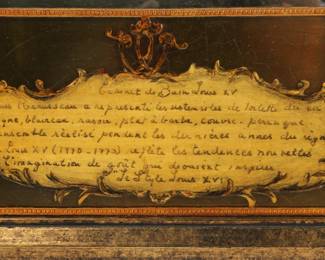 Cabinet de Bain Louis XV
a représenté les ustensiles de toilette du
blaireau, rasoir, plat à barbe, couvre-perruque,
ensemble réalisé pendant les dernières années du règne
Louis XV (1770-1774) reflète les tendances nouvelles
l'imagination de goût qui devaient inspirer
"le Style Louis XVI"